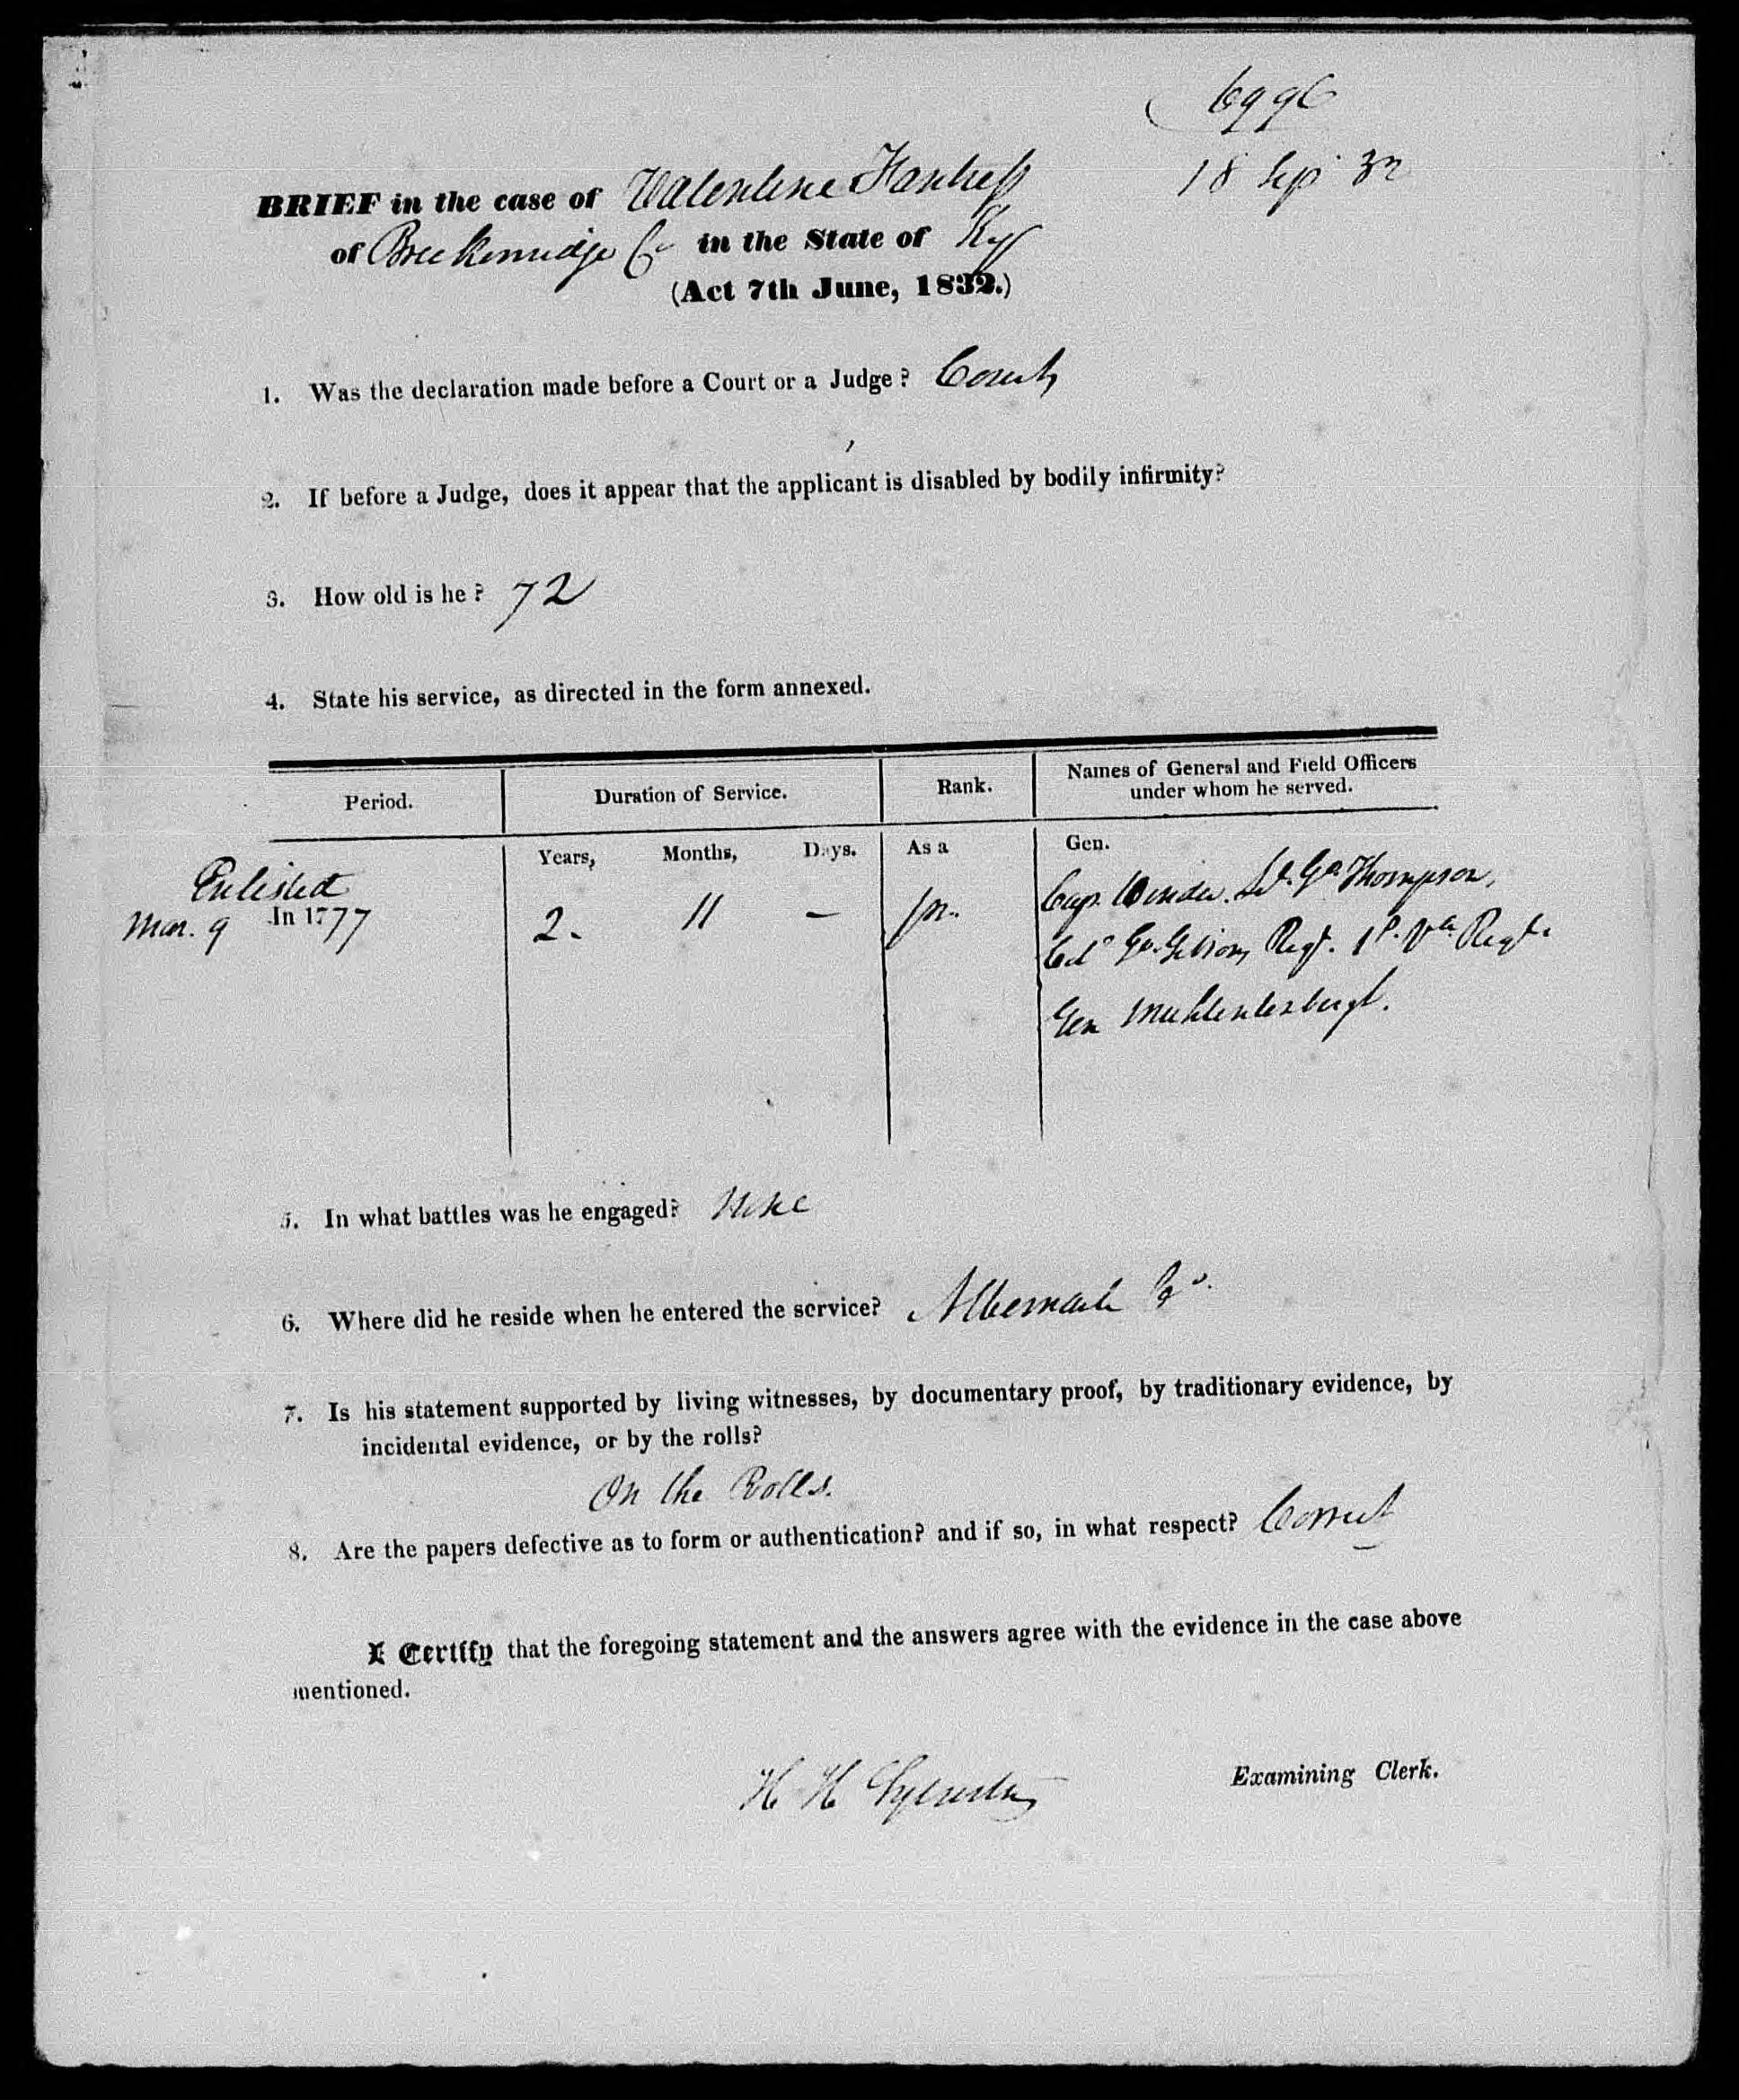 6996
18 Sep 32
BRIEF in the case of Valentine
of Breckenridge Co in the State of Ky
(Act 7th June, 1832.)
1. Was the declaration made before a Court or a Judge? Court
2. If before a Judge, does it appear that the applicant is disabled by bodily infirmity?
3. How old is he? 72
4. State his service, as directed in the form annexed.
Period. Duration of Service. Rank. Names of General and Field Officers
under whom he served.
Years, Months, Days. As a Gen.
Enlisted
Mar. 9 In 1777 2. 11 –
Cap. Winder. Thompson,
Col Go. Gibson Regt. Va Regt.
Gen Muhlenbergh.
5. In what battles was he engaged? None
6. Where did he reside when he entered the service? Albemarle Co.
7. Is his statement supported by living witnesses, by documentary proof, by traditionary evidence, by
incidental evidence, or by the rolls?
On the Rolls.
8. Are the papers defective as to form or authentication? and if so, in what respect? Correct
I Certify that the foregoing statement and the answers agree with the evidence in the case above
mentioned.
H H Sylvester
Examining Clerk.